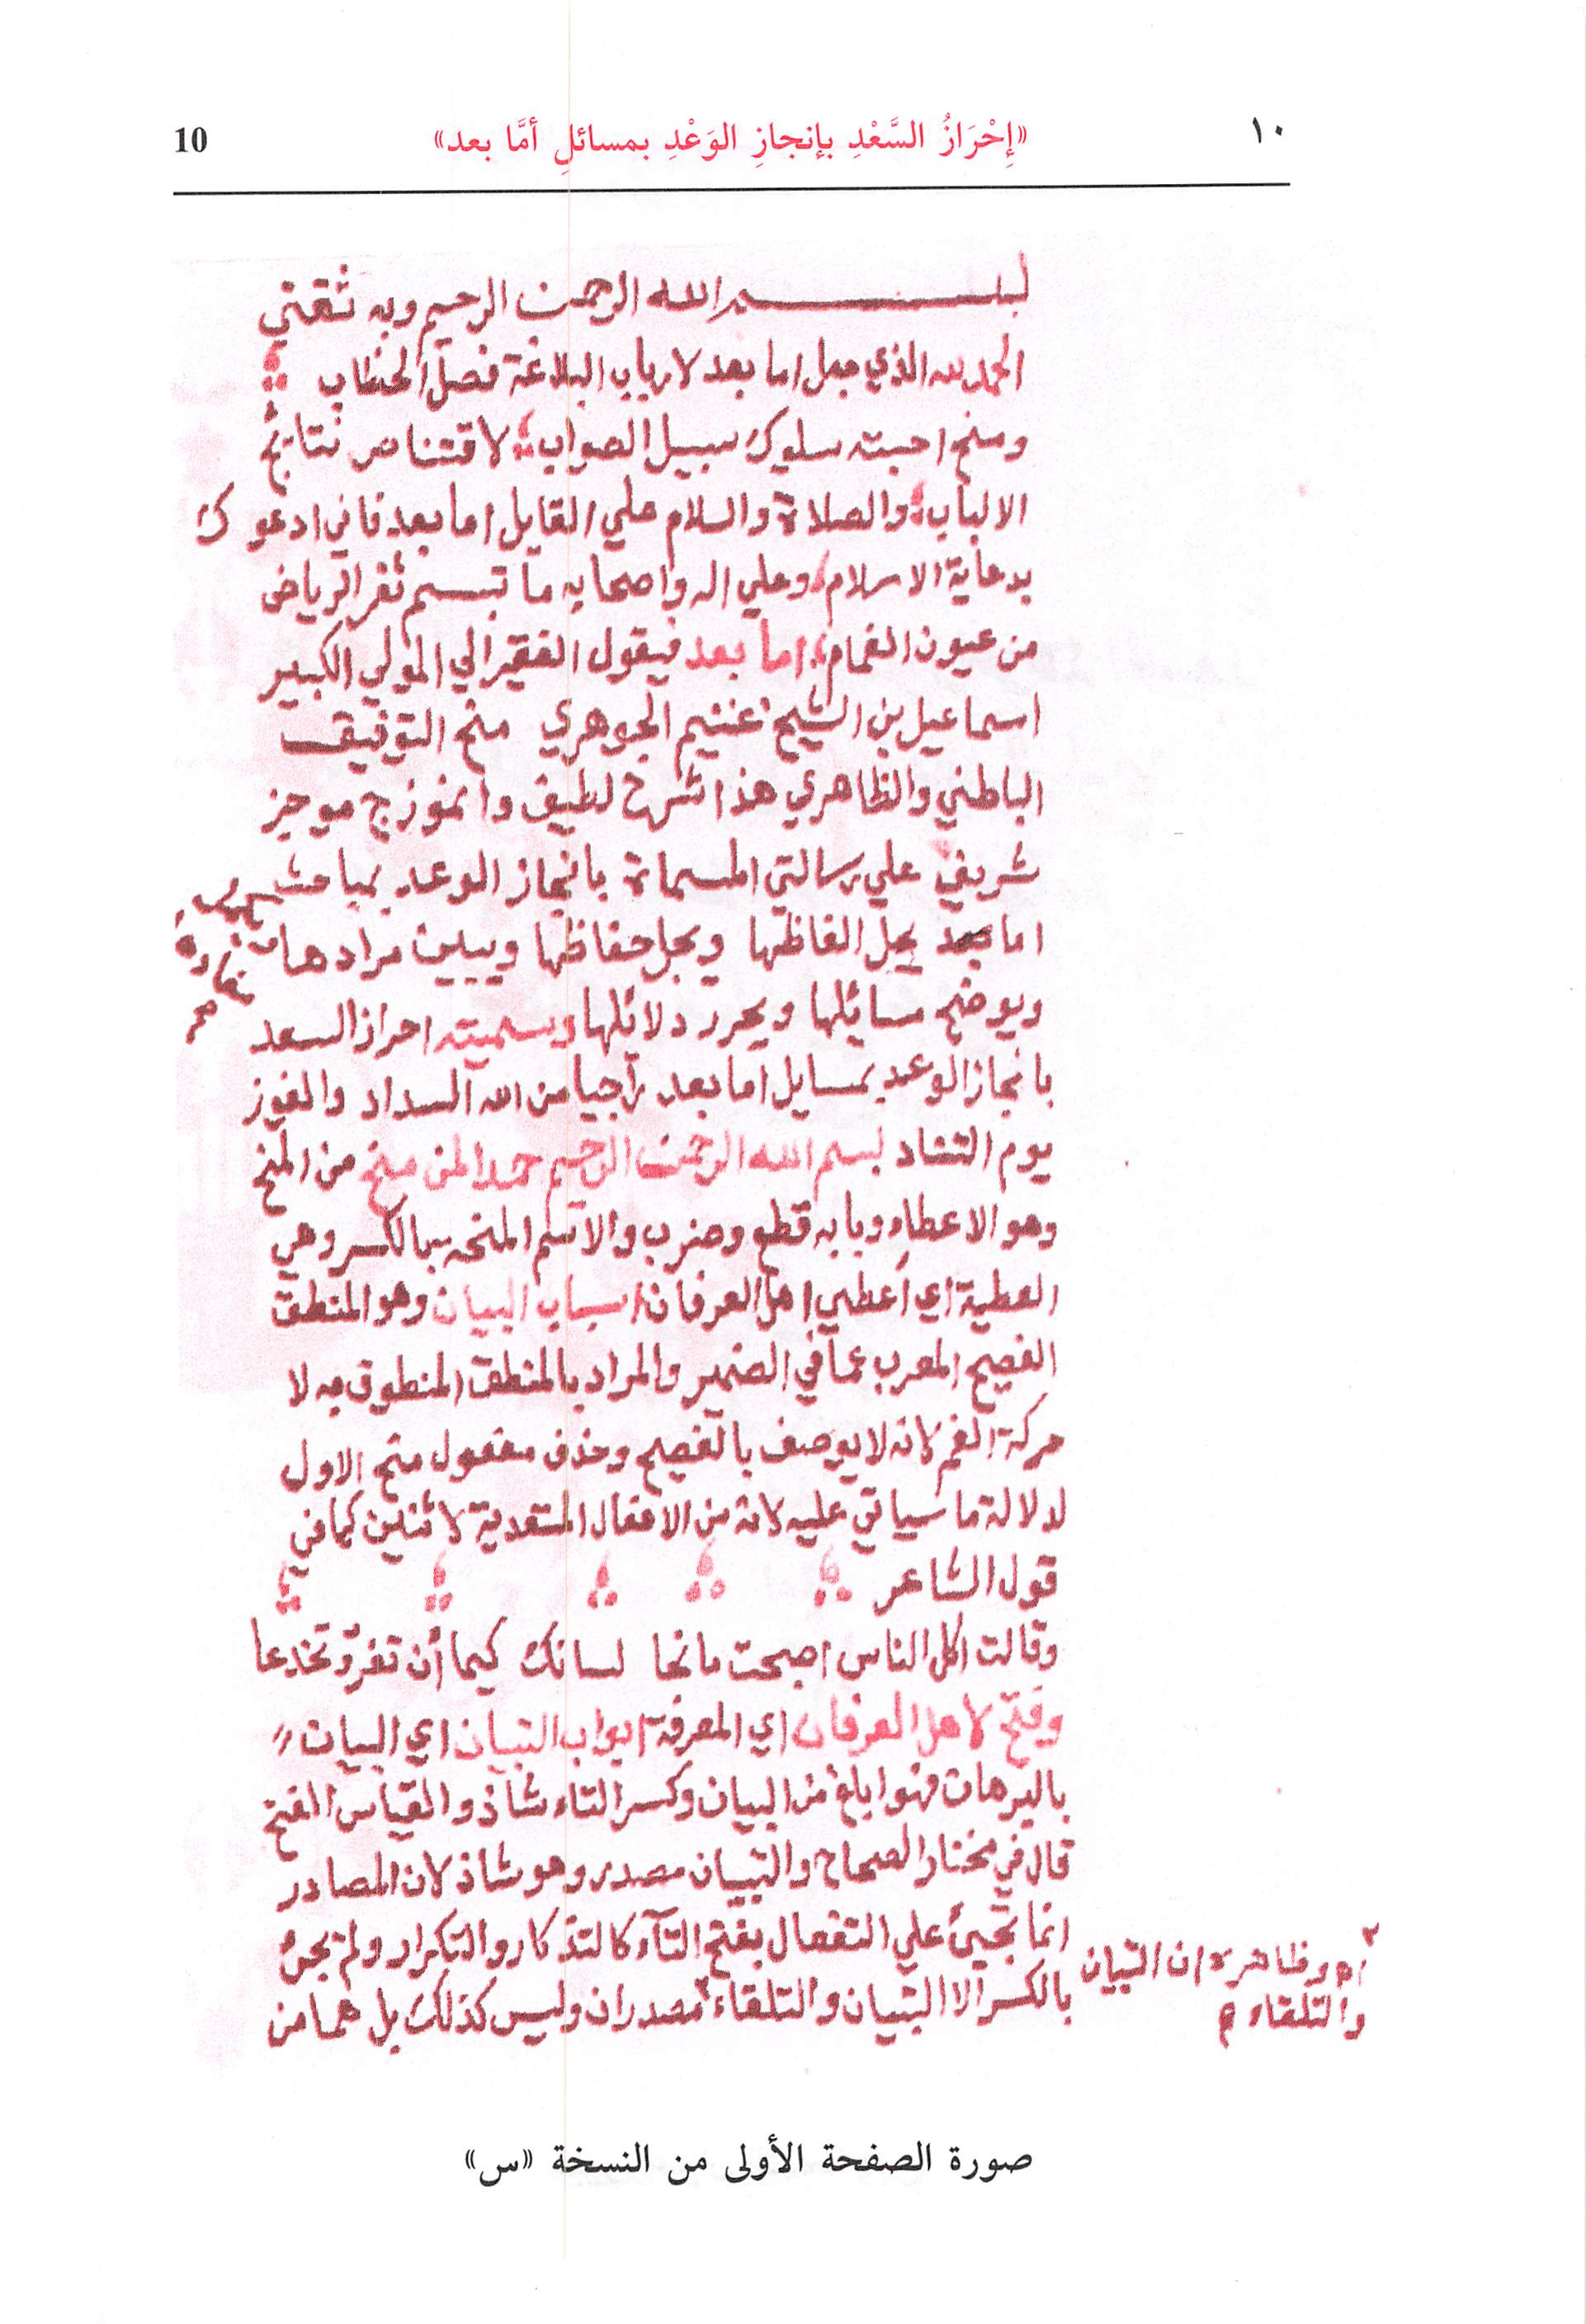 ١٠ «إِحْرَازُ السَّعْدِ بإنجازِ الوَعْدِ بمسائلِ أمَّا بعد» 10
بسم الله الرحمن الرحيم وبه ثقتي
الحمد لله الذي جعل اما بعد لارباب البلاغة فصل الخطاب
ومنح احبته سلوك سبيل الصواب لاقتناص نتايج
الالباب والصلاة والسلام علي القايل اما بعد فاني ادعوك
بدعاية الاسلام وعلي اله واصحابه ما تبسم ثغر الرياض
من عيون الغمام اما بعد فيقول الفقير الي المولي الكبير
اسماعيل بن الشيخ غنيم الجوهري منح التوفيق
الباطني والظاهري هذا شرح لطيف وانموزج موجز
شريف علي رسالتي المسماة بانجاز الوعد بمباحث
اما بعد يحل الفاظها ويجل حفاظها ويبين مرادها
ويوضح مسائلها ويحرر دلائلها وسميته احراز السعد
بانجاز الوعد بمسايل اما بعد راجيا من الله السداد والفوز
يوم التناد بسم الله الرحمن الرحيم حمدا لمن منح من المنح
وهو الاعطاء وبابه قطع وضرب والاسم المنحه بالكسر وهي
العطية اي أعطي اهل العرفان اسباب البيان وهو المنطق
الفصيح المعرب عما في الضمير والمراد بالمنطق المنطوق به لا
حركة الفم لانه لا يوصف بالفصيح وحذف مفعول منح الاول
لدلالة ما سياتي عليه لانه من الافعال المتعدية لاثنين كما في
قول الشاعر
وقالت اكل الناس اصبحت مانحا لسانك كيما أن تغر وتخدعا
وفتح لاهل العرفان اي المعرفة ابواب التبيان اي البيان
بالبرهان فهو ابلغ من البيان وكسر التاء شاذ والقياس الفتح
قال في مختار الصحاح والتبيان مصدر وهو شاذ لان المصادر
انما تجيئ علي التفعال بفتح التآء كالتذكار والتكرار ولم يجئ
بالكسر الا التبيان والتلقاء مصدران وليس كذلك بل هما من
اه وظاهره ان التبيان
والتلقاء
صورة الصفحة الأولى من النسخة «س»